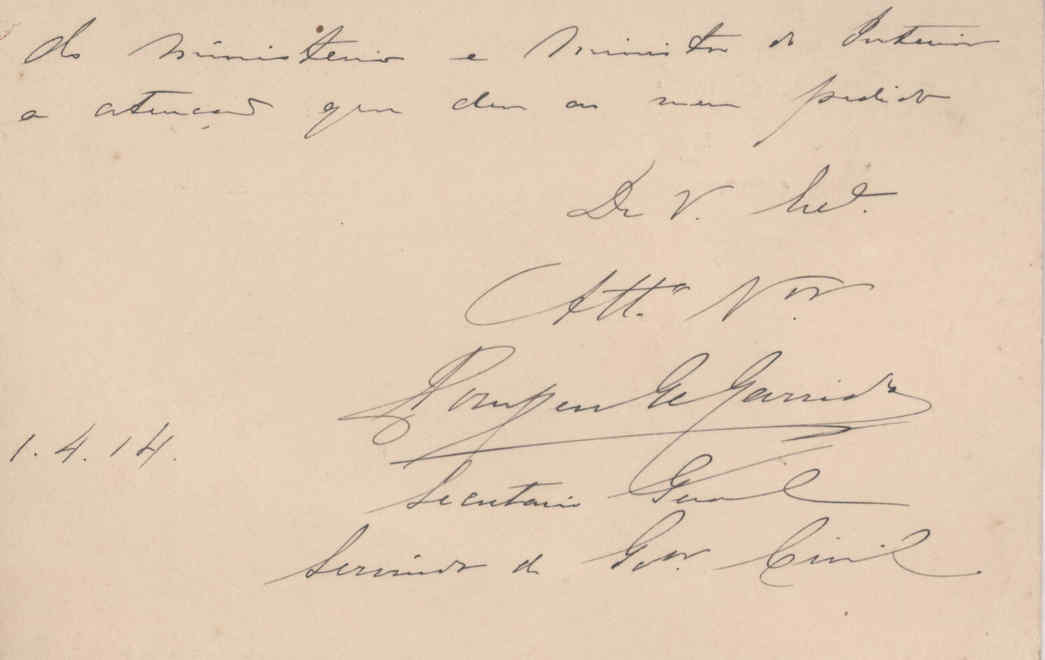 do Ministerio e Ministro do Interior
a atenção que deu ao meu pedido
De V.
Att.º V.ºr
Pompeu de Garrido
1.4.14.
Secretario Geral
Servindo de Gov.ºr Civil